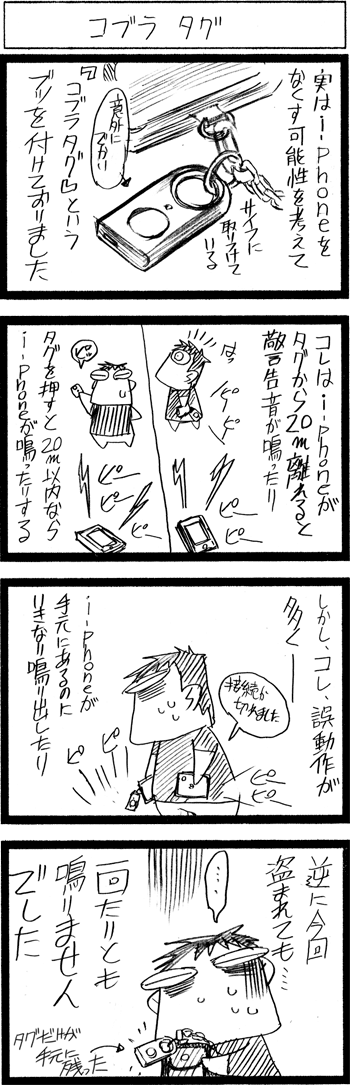 コブラ タグ
実はi-phoneを
なくす可能性を考えて
サイフに
取りつけて
いる
意外に
でかい
「コブラタグ」という
ブツを付けておりました
コレはi-phoneが
タグから20m離れると
警告音が鳴ったり
はっ
ピピ
ピピ
ピー
ピー
ピッ
タグを押すと20m以内なら
i-phoneが鳴ったりする
ピー
ピー
ピー
しかし、コレ、誤動作が
多く―
接続が
切れました
i-phoneが
手元にあるのに
いきなり鳴り出したり
ピー
ピー
ピ
ピ
逆に今回
盗まれても…
…
一回たりとも
鳴りません
でした
タグだけが
手元に
残った